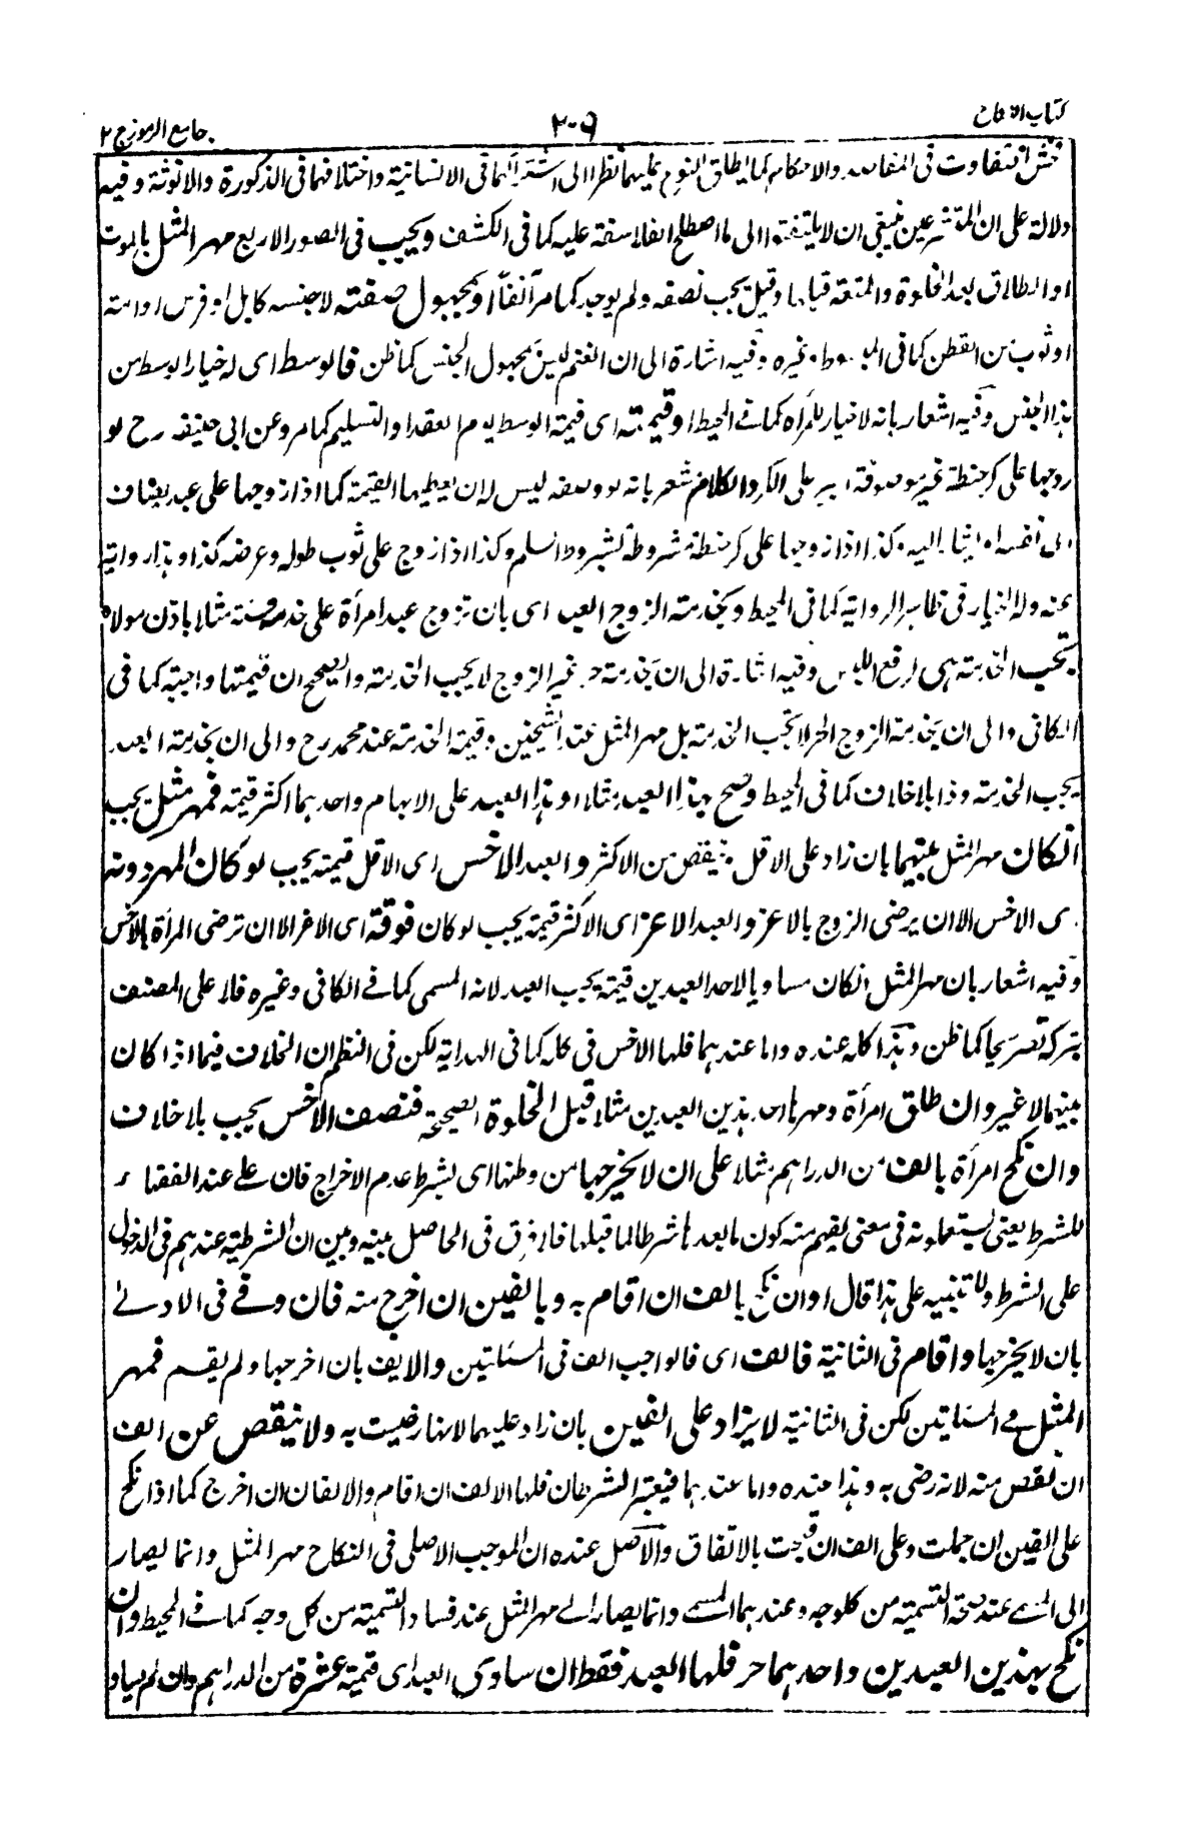 كتاب النكاح
٢٠٩
جامع الرموز ج ٢
فحش التفاوت فى المقاصد والاحكام كما يطلق النوع عليهما نظرا الى اشتراكهما فى الانسانية واختلافهما فى الذكورة والانوثة وفيه
دلالة على ان المتشرعين ينبغى ان لا يلتفتوا الى ما اصطلح الفلاسفة عليه كما فى الكشف ويجب فى الصور الاربع مهر المثل بالموت
او الطلاق بعد الخلوة والمتعة قبلها وقيل يجب نصفه ولم يوجد كما مر آنفا او مجهول صفته لا جنسه كابل او فرس او امة
او ثوب من القطن كما فى المبسوط وغيره وفيه اشارة الى ان الغنم ليس مجهول الجنس كما ظن فالوسط اى له خيار الوسط من
هذا الجنس وفيه اشعار بانه لا خيار للمرأة كما فى المحيط او قيمته اى قيمة الوسط يوم العقد او التسليم كما مر وعن ابى حنيفة رح لو
زوجها على كر حنطة غير موصوفة اجبر على الكر والكلام مشعر بانه لو وصفه ليس له ان يعطيها القيمة كما اذا زوجها على عبد يضاف
الى نفسه او يشار اليه وكذا اذا زوجها على كر حنطة مشروطة بشروط السلم وكذا اذا زوج على ثوب طوله وعرضه كذا وهذا رواية
عنه ولا الخيار فى ظاهر الرواية كما فى المحيط وبخدمة الزوج العبد اى بان تزوج عبد امرأة على خدمة سنة مثلا باذن مولاه
تجب الخدمة هى لرفع اللبس وفيه اشارة الى ان بخدمة حر غير الزوج لا يجب الخدمة والصحيح ان قيمتها واجبة كما فى
الكافى والى ان بخدمة الزوج الحر لا تجب الخدمة بل مهر المثل عند الشيخين وقيمة الخدمة عند محمد رح والى ان بخدمة العبد
يجب الخدمة وذا بلا خلاف كما فى المحيط وصح بهذا العبد مثلا او بهذا العبد على الابهام واحدهما اكثر قيمة فمهر مثل يجب
انكان مهر المثل بينهما بان زاد على الاقل وينقص من الاكثر و العبد الاخس اى الاقل قيمة يجب لو كان المهر دونه
اى الاخس الا ان يرضى الزوج بالاعز والعبد الاعز اى الاكثر قيمة يجب لو كان فوقه اى الاعز الا ان ترضى المرأة بالاخس
وفيه اشعار بان مهر المثل انكان مساويا لاحد العبدين قيمة يجب العبد لانه المسمى كما فى الكافى وغيره فلا على المصنف
بتركه تصريحا كما ظن وهذا كله عنده واما عندهما فلها الاخس فى كله كما فى الهداية لكن فى النظم ان الخلاف فيما اذا كان
بينهما لا غير وان طلق امرأة ومهرها احد هذين العبدين مثلا قبل الخلوة الصحيحة فنصف الاخس يجب بلا خلاف
وان نكح امرأة بالف من الدراهم مثلا على ان لا يخرجها من وطنها اى بشرط عدم الاخراج فان على عند الفقهاء
للشرط يعنى يستعملونه فى معنى يفهم منه كون ما بعدها شرطا لما قبلها فلا فرق فى الحاصل بينه وبين ان الشرطية عندهم فى الدخول
على الشرط وللتنبيه على هذا قال او ان نكح بالف ان اقام به وبالفين ان اخرج منه فان وفى فى الاولى
بان لا يخرجها واقام فى الثانية فالف اى فالواجب الف فى المسئلتين والا يف بان اخرجها ولم يقم فمهر
المثل فى المسئلتين لكن فى الثانية لا يزاد على الفين بان زاد عليهما لانها رضيت به ولا ينقص عن الف
ان نقص منه لانه رضى به وهذا عنده واما عندهما فيعتبر الشرطان فلها الالف ان اقام والالفان ان اخرج كما اذا نكح
على الفين ان جملت وعلى الف ان قبحت بالاتفاق والاصل عنده ان الموجب الاصلى فى النكاح مهر المثل وانما يصار
الى المسمى عند صحة التسمية من كل وجه وعندهما المسمى وانما يصار الى مهر المثل عند فساد التسمية من كل وجه كما فى المحيط وان
نكح بهذين العبدين واحدهما حر فلها العبد فقط ان ساوى العبد اى قيمة عشرة من الدراهم وان لم يساو